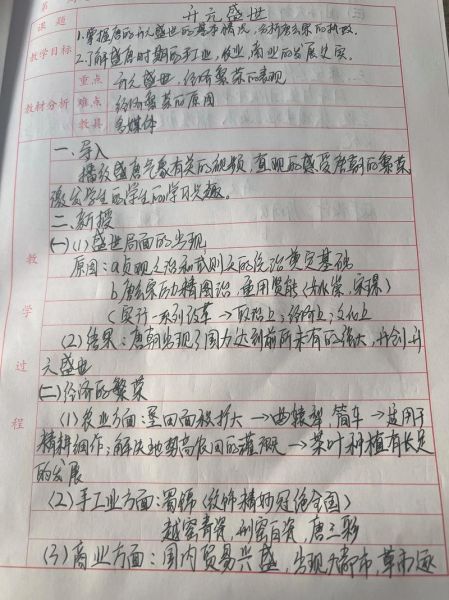 第
课题 开元盛世
教学目标 1.掌握唐的开元盛世的基本情况,分析唐玄宗的新政.
2.了解盛唐时期的手工业,农业,商业的发展史实.
教材分析 重点 开元盛世,经济繁荣的表现
难点 经济繁荣的原因
教具 多媒体
教学过程
一、导入
播放盛唐气象有关的视频,直观的感受唐朝的繁荣
激发学生的学生的学习兴趣。
二、新授
(一)(1)盛世局面的出现
原因:a.贞观之治和武则天的统治奠定基础
b.唐玄宗励精图治 重用贤能(姚崇、宋璟)
c 实行一系列改革→政治上;经济上;文化上
(2)结果:唐朝出现了国力达到前所未有的强大,开创开
元盛世
(二)经济的繁荣
(1)农业方面:垦田面积扩大→曲辕犁,筒车→适用于
精耕细作;解决地势高农田的灌溉→茶叶种植有长足
的发展
(2)手工业方面:蜀锦(纹饰精妙冠绝全国)
越窑青瓷,邢窑白瓷,唐三彩
(3)商业方面:国内贸易兴盛,出现大都市,草市